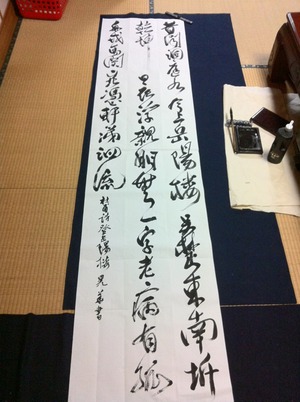 昔聞洞庭水今上岳陽楼呉楚東南坼
乾坤日夜浮親朋無一字老病有孤
舟戎馬関山北憑軒涕泗流
杜詩登岳陽楼 書